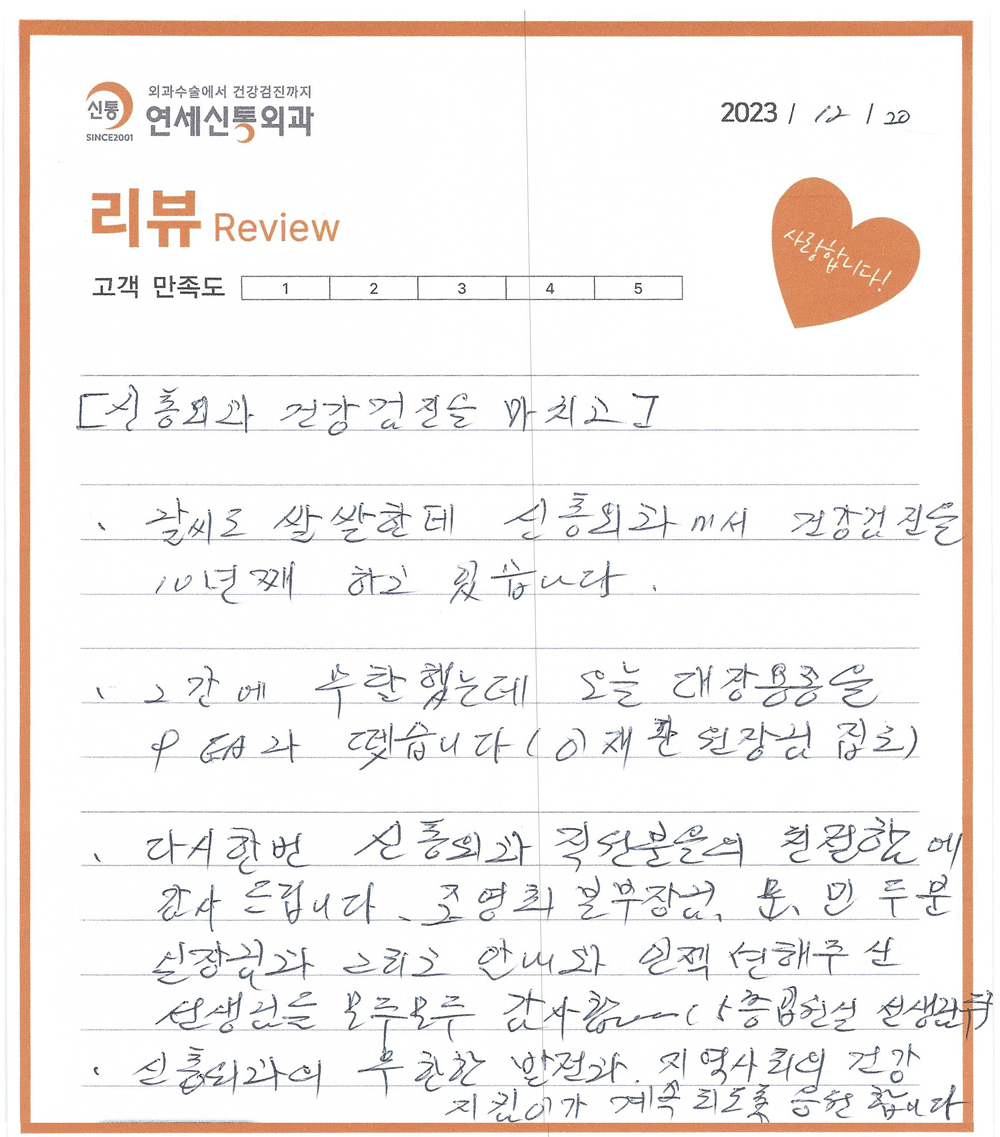 신통
SINCE2001
외과수술에서 건강검진까지
연세신통외과
2023 / 12 / 20
리뷰 Review
사랑합니다!
고객 만족도 1 2 3 4 5
[신통외과 건강검진을 마치고]
. 날씨도 쌀쌀한데 신통외과에서 건강검진을
10년째 하고 있습니다.
. 그간에 무탈했는데 오늘 대장용종을
뗐습니다 (이재환 원장님 집도)
. 다시한번 신통외과 직원분들의 친절함에
감사드립니다. 조영희 본부장님, 문, 민 두분
실장님과 그리고 안내와 인젝션해주신
선생님들 모두모두 감사합니다 (5층 선생님
. 신통외과의 무한한 발전과, 지역사회의 건강
지킴이가 계속 되도록 응원합니다